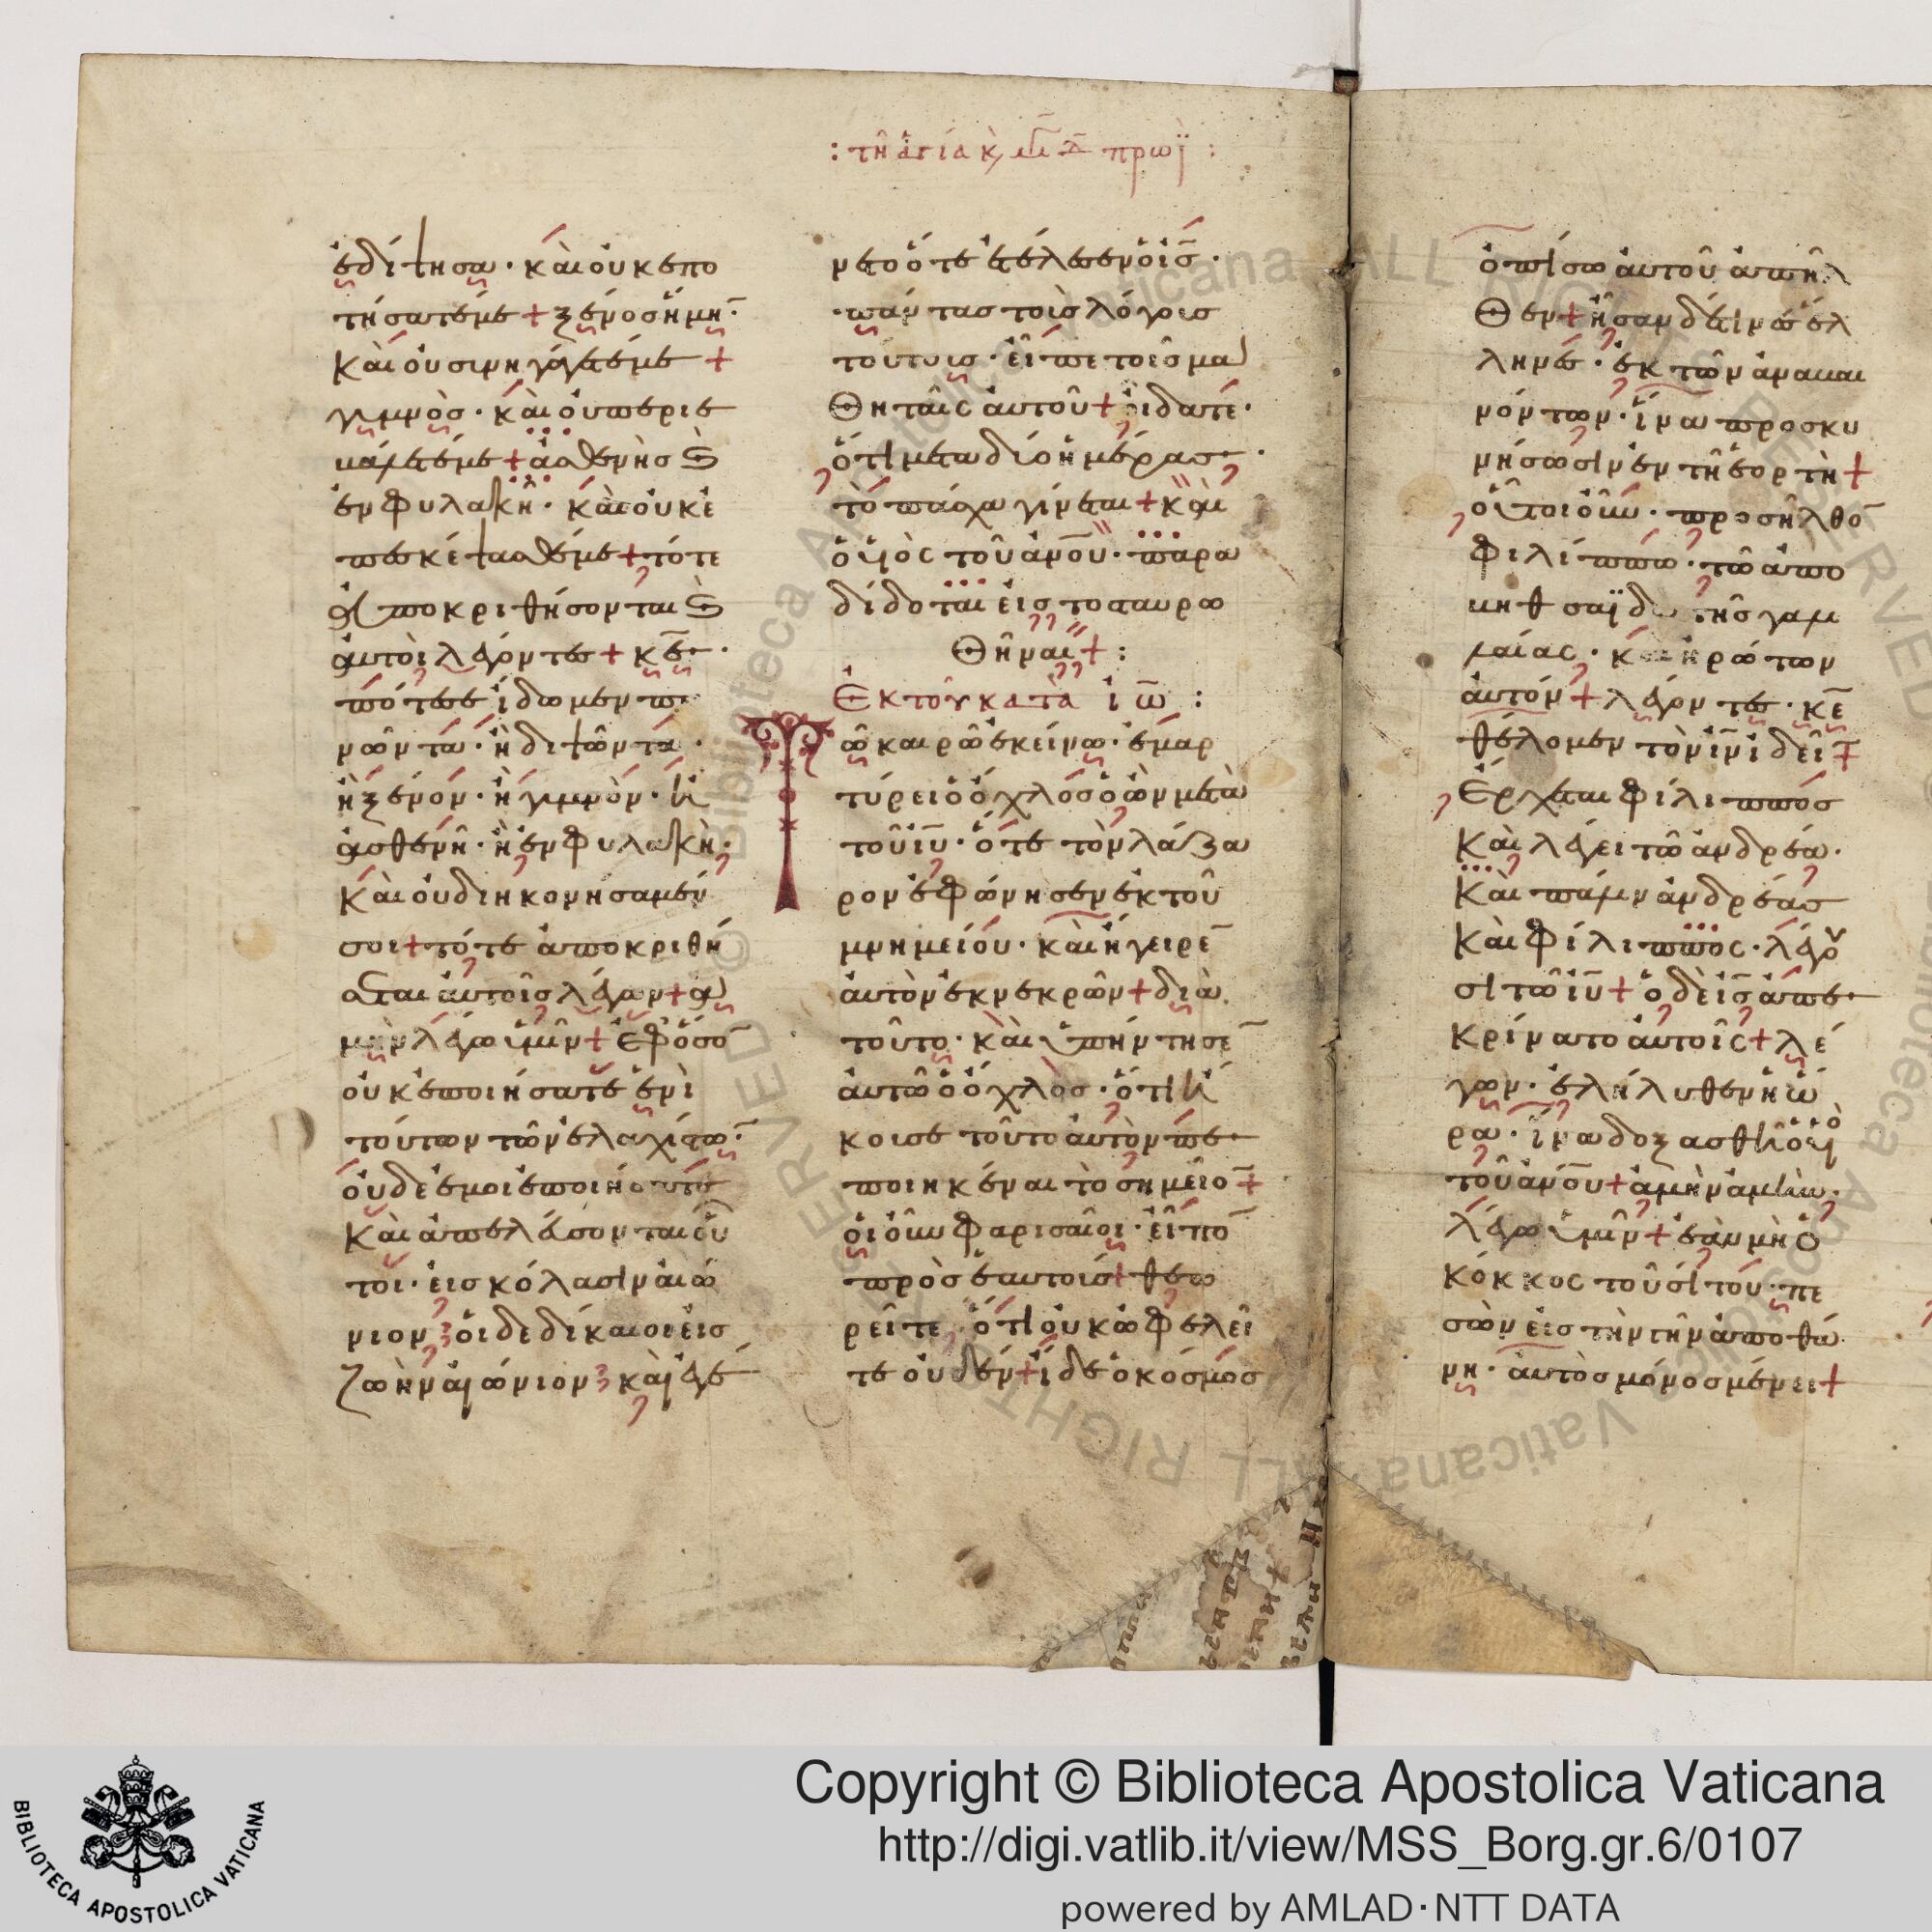 : τῆ ἁγία κ, μγ Δ πρωΐ :
ἐδίψησα· καὶ οὐκ ἐπο
τήσατέ με + ξένος ἤμη̅·
καὶ οὐ συνηγάγετέ με +
γυμνὸς· καὶ οὐ περιε
βάλετέ με + ἀσθενὴς ς
ἐν φυλακῆ· καὶ οὐκ ἐ
πεσκέψασθέ με + τότε
ἀποκριθήσονται ς
αὐτοὶ λέγοντες + κε̅·
πότε σε ἴδωμεν πι
νῶντα· ἢ διψῶντα·
ἢ ξένον· ἢ γυμνὸν· ἢ
ἀσθενῆ· ἢ ἐν φυλακὴ·
καὶ οὐ διηκονησαμέν
σοι + τότε ἀποκριθή
σεται αὐτοῖς λέγων + ἀ
μὴν λέγω ὑμῖν + ἐφ ὅσο̅
οὐκ ἐποιήσατε ἑνὶ
τούτων τῶν ἐλαχίστω̅·
οὐδὲ ἐμοὶ ἐποιήσατε
καὶ ἀπελεύσονται οὗ
τοι· εἰς κόλασιν αἰώ
νιον· οἱ δὲ δίκαιοι εἰς
ζωὴν αἰώνιον· καὶ ἐγέ
νετο ὅτε ἐτέλεσεν ὁ ις̅·
πάντας τοὺς λόγους
τούτους· εἶπε τοῖς μα
θηταῖς αὐτοῦ + οἴδατε·
ὅτι μετὰ δύο ἡμέρας·
τὸ πάσχα γίνεται + καὶ
ὁ υἱὸς τοῦ ἀνο̅υ· παρα
δίδοται εἰς το σταυρω
θῆναι + :
Ἐκ τοῦ κατὰ ἰω̅ :
Τῶ καιρῶ ἐκείνω· ἐμαρ
τύρει ὁ ὄχλος ὁ ὢν μετὰ
τοῦ ιυ̅· ὅτε τὸν λάζα
ρον ἐφώνησεν ἐκ τοῦ
μνημείου· καὶ ἤγειρε̅
αὐτὸν ἐκ νεκρῶν + διὰ
τοῦτο· καὶ ὑπήντησε̅
αὐτῶ ὁ ὄχλος· ὅτι ἤ
κουσε τοῦτο αὐτὸν πε
ποιηκέναι τὸ σημεῖο̅ +
οἱ οὖν φαρισαῖοι· εἶπο̅
πρὸς ἑαυτοις + θεω
ρεῖτε ὅτι οὐκ ὠφελεῖ
τε οὐδέν + ἴδε ὁ κόσμος
ὀπίσω αὐτοῦ ἀπῆλ
θεν + ἦσαν δέ τινες ἕλ
ληνες· ἐκ τῶν ἀναβαι
νόντων· ἵνα προσκυ
νήσωσιν ἐν τῆ ἑορτὴ +
οὗτοι οὖν· προσῆλθο̅
φιλίππω· τῶ ἀπὸ
βηθσαϊδὰ τῆς γαλι
λαίας· κ ἠρώτων
αὐτόν + λέγοντες· κε̅
θέλομεν τὸν ιν̅ ἰδεῖ̅ +
Ἔρχεται φίλιππος
καὶ λέγει τῶ ἀνδρέα·
καὶ πάλιν ἀνδρέας
καὶ φίλιππος· λέγου
σι τῶ ιυ̅ + ὁ δὲ ις̅ ἀπε
κρίνατο αὐτοῖς + λέ
γων· ἐλήλυθεν ἡ ὥ
ρα· ἵνα δοξασθῆ ὁ υἱὸ
τοῦ ἀνο̅υ + ἀμὴν ἀμὴν·
λέγω ὑμῖν + ἐὰν μὴ ὁ
κόκκος τοῦ σίτου· πε
σὼν εἰς τὴν γῆν ἀποθά
νη· αὐτὸς μόνος μένει +
BIBLIOTECA APOSTOLICA VATICANA
Copyright © Biblioteca Apostolica Vaticana
http://digi.vatlib.it/view/MSS_Borg.gr.6/0107
powered by AMLAD·NTT DATA